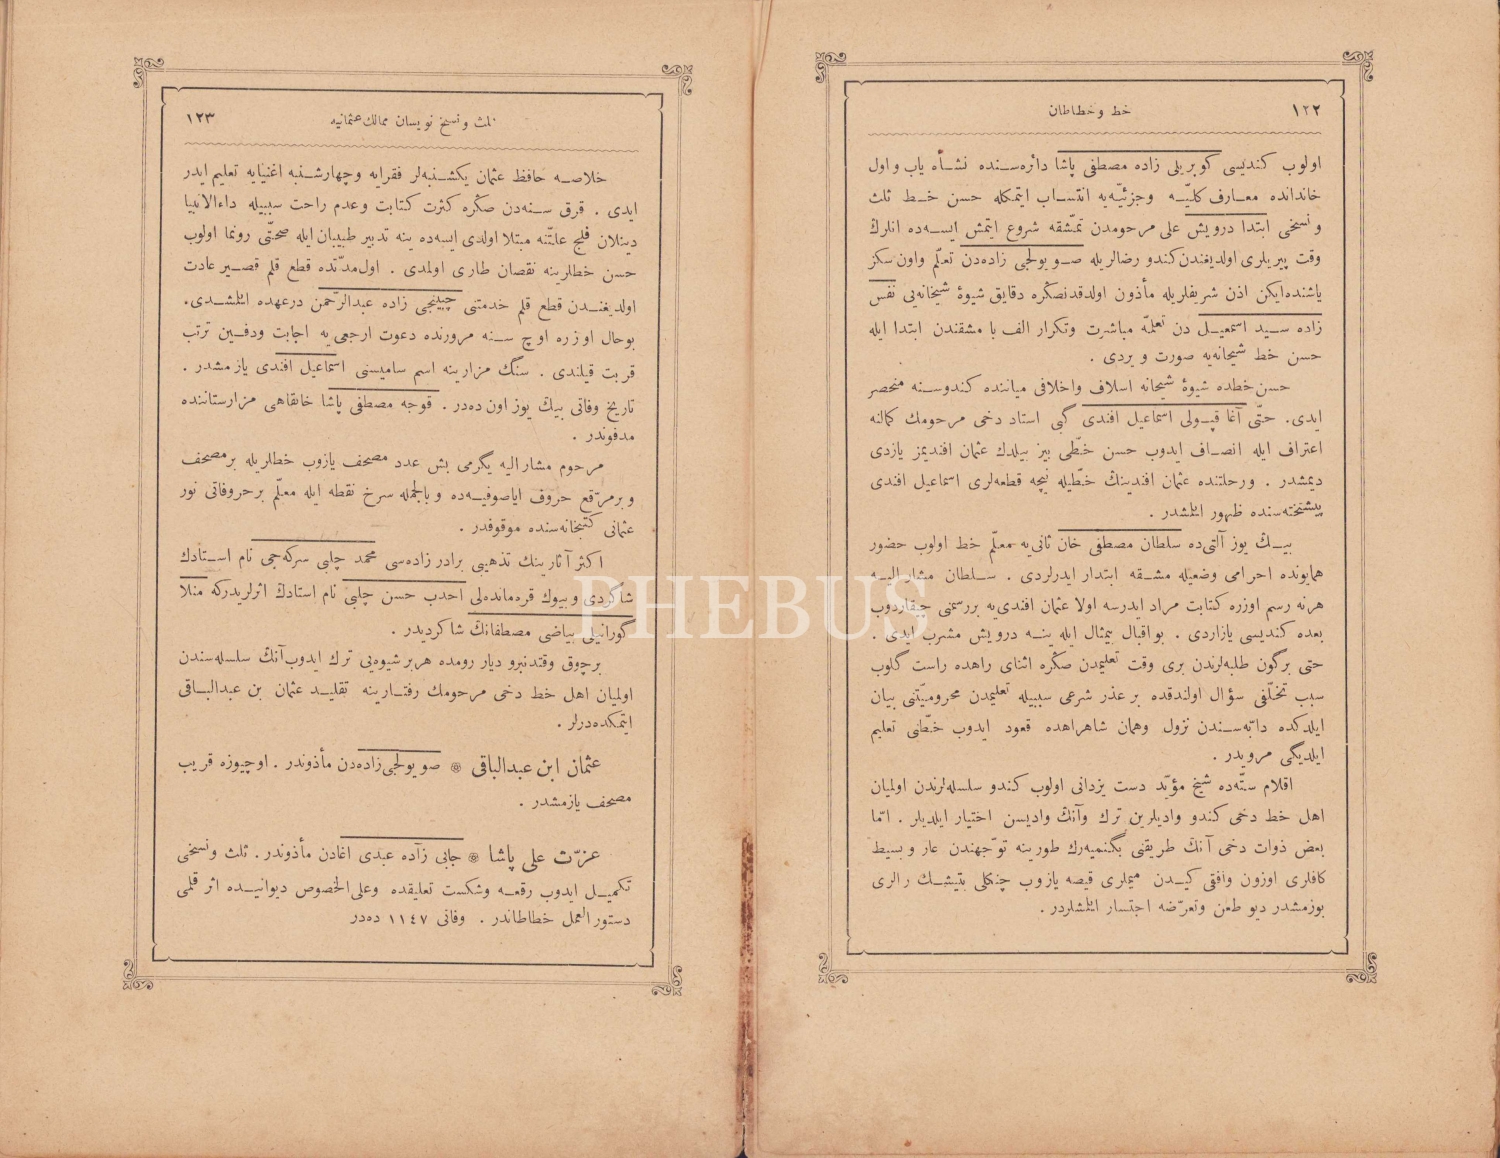 ١٢٢
خط و خطاطان
اولوب كنديسى كوپريلى زاده مصطفى پاشا دائره‌سنده نشأه ياب و اول
خاندانده معارف كليّه و جزئيّه‌يه انتساب ايتمكله حسن خط ثلث
و نسخى ابتدا درويش على مرحومدن تمشّقه شروع ايتمش ايسه‌ده انلرڭ
وقت پيريلرى اولديغندن كندو رضالريله صويولجى زاده‌دن تعلّم واون سكز
ياشنده‌ايكن اذن شريفلريله مأذون اولدقدنصكره دقايق شيوۀ شيخانه‌يى نفس
زاده سيد اسمعيل دن تعلمّه مباشرت وتكرار الف با مشقندن ابتدا ايله
حسن خط شيخانه‌يه صورت ويردى .
حسن خطده شيوۀ شيخانه اسلاف واخلافى مياننده كندوسنه منحصر
ايدى. حتّى آغا قپولى اسماعيل افندى كبى استاد دخى مرحومك كمالنه
اعتراف ايله انصاف ايدوب حسن خطّى بيز بيلدك عثمان افنديمز يازدى
ديمشدر . ورحلتنده عثمان افندينڭ خطّيله نيچه قطعه‌لرى اسماعيل افندى
پيشتخته‌سنده ظهور ائلشدر .
بيڭ يوز آلتى‌ده سلطان مصطفى خان ثانى‌يه معلّم خط اولوب حضور
همايونده احرامى وضعيله مشقه ابتدار ايدرلردى . سلطان مشاراليه
هرنه رسم اوزره كتابت مراد ايدرسه اولا عثمان افندى‌يه بررسمنى چيقاردوب
بعده كنديسى يازاردى . بو اقبال بيمثال ايله ينه درويش مشرب ايدى .
حتى برگون طلبه‌لرندن برى وقت تعليمدن صكره اثناى راهده راست گلوب
سبب تخلّفى سؤال اولندقده برعذر شرعى سببيله تعليمدن محروميّتنى بيان
ايلدكده دابّه‌سندن نزول وهمان شاهراهده قعود ايدوب خطّنى تعليم
ايلديگى مرويدر .
اقلام ستّه‌ده شيخ مؤيّد دست يزدانى اولوب كندو سلسله‌لرندن اولميان
اهل خط دخى كندو واديلرين ترك وآنڭ واديسن اختيار ايلديلر . امّا
بعض ذوات دخى آنڭ طريقنى بگنميه‌رك طورينه توجّهندن عار و بسيط
كافلرى اوزون واقى كيدن ميملرى قيصه يازوب چنكلى بتيشيك رالرى
بوزمشدر ديو طعن وتعرّضه اجتسار ائلشلردر .
ثلث و نسخ نويسان ممالك عثمانيه
١٢٣
خلاصه حافظ عثمان يكشنبه‌لر فقرايه وچهارشنبه اغنيايه تعليم ايدر
ايدى . قرق سنه‌دن صكره كثرت كتابت وعدم راحت سببيله داءالانبيا
دينلان فلج علتّنه مبتلا اولدى ايسه‌ده ينه تدبير طبيبان ايله صحتّى رونما اولوب
حسن خطلرينه نقصان طارى اولمدى . اول‌مدّتده قطع قلم قصير عادت
اولديغندن قطع قلم خدمتنى چينيجى زاده عبدالرّحمن درعهده ائلشدى.
بوحال اوزره اوچ سنه مرورنده دعوت ارجعى‌يه اجابت ودفين ترتب
قربت قيلندى . سنگ مزارينه اسم ساميسنى اسماعيل افندى يازمشدر .
تاريخ وفاتى بيك يوز اون ده‌در . قوجه مصطفى پاشا خانقاهى مزارستاننده
مدفوندر .
مرحوم مشاراليه يگرمى بش عدد مصحف يازوب خطلريله برمصحف
وبرمرّقع حروف اياصوفيه‌ده و بالجمله سرخ نقطه ايله معلّم برحروفاتى نور
عثمانى كتبخانه‌سنده موقوفدر .
اكثر آثارينك تذهيبى برادر زاده‌سى محمد چلبى سركه‌جى نام استادك
شاگردى و بيوك قره‌مانده‌لى احدب حسن چلبى نام استادڭ اثرلريدركه منلا
گورانيلى بياضى مصطفانڭ شاكرديدر .
برچوق وقتدنبرو ديار رومده هربر شيوه‌يى ترك ايدوب آنڭ سلسله‌سندن
اولميان اهل خط دخى مرحومك رفتارينه تقليد عثمان بن عبدالباقى
ايتمكده‌درلر .
عثمان ابن عبدالباقى ۞ صويولجى‌زاده‌دن مأذوندر . اوچيوزه قريب
مصحف يازمشدر .
عزّت على پاشا ۞ جابى زآده عبدى اغادن مأذوندر . ثلث ونسخى
تكميل ايدوب رقعه وشكست تعليقده وعلى‌الخصوص ديوانيده اثر قلمى
دستور العمل خطاطاندر . وفاتى ١١٤٧ ده‌در
PHEBUS